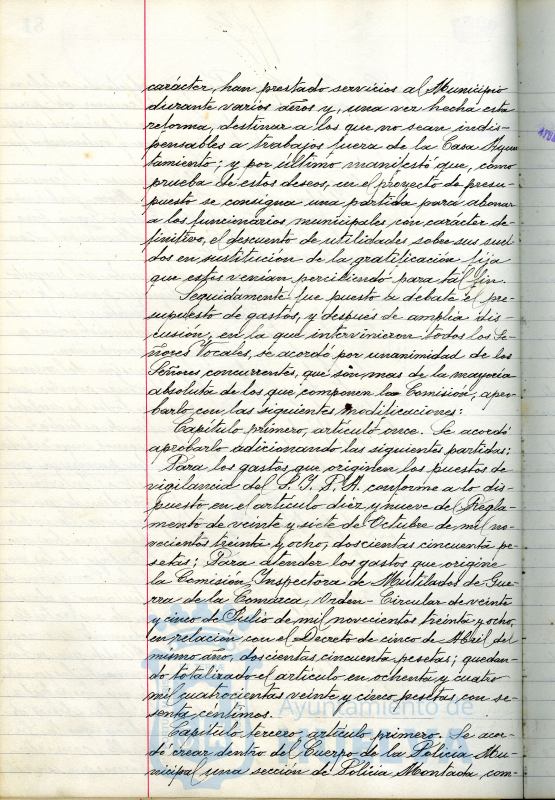 carácter, han prestado servicios al Municipio
durante varios años y, una vez hecha esta
reforma, destinar a los que no sean indis-
pensables a trabajos fuera de la Casa Ayun
tamiento; y por último manifestó que, como
prueba de estos deseos, en el proyecto de presu-
puesto se consigna una partida para abonar
a los funcionarios municipales con carácter de-
finitivo, el descuento de utilidades sobre sus suel
dos en sustitución de la gratificación fija
que estos venían percibiendo para tal fin.
Seguidamente fue puesto a debate el pre
supuesto de gastos, y después de amplia dis-
cusión, en la que intervinieron todos los Se-
ñores Vocales, se acordó por unanimidad de los
Señores concurrentes, que son mas de la mayoria
absoluta de los que componen la Comisión, apro-
barlo con las siguientes modificaciones:
Capítulo primero, articulo once. Se acordó
aprobarlo adicionando las siguientes partidas:
Para los gastos que originen los puestos de
vigilancia del S. I. P. A. conforme a lo dis-
puesto en el articulo diez y nueve del Regla-
mento de veinte y siete de Octubre de mil no-
vecientos treinta y ocho, doscientas cincuenta pe-
setas; Para atender los gastos que origine
la Comisión Inspectora de Mutilados de Gue-
rra de la Comarca, Orden-Circular de veinte
y cinco de Julio de mil novecientos treinta y ocho,
en relación con el Decreto de cinco de Abril del
mismo año, doscientas cincuenta pesetas; quedan-
do totalizado el articulo en ochenta y cuatro
mil cuatrocientas veinte y cinco pesetas con se-
senta céntimos.
Ayuntamiento de
Capítulo tercero, artículo primero. Se acor-
dó crear dentro del Cuerpo de la Policía Mu-
nicipal una sección de Policia Montada, com-